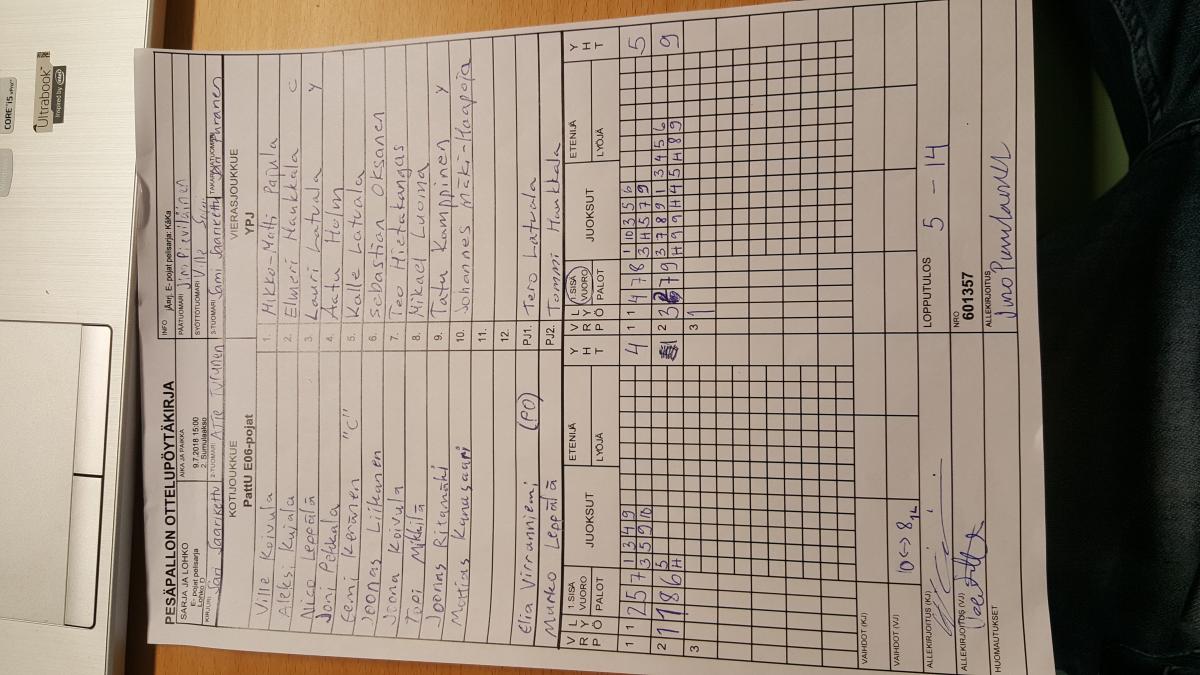 CORE i5 vPro
Ultrabook™
Inspired by intel
PESÄPALLON OTTELUPÖYTÄKIRJA
SARJA JA LOHKO
E- pojat pelisarja
Lohko D
AIKA JA PAIKKA
9.7.2018 15:00
2. Sumulaakso
INFO
Järj. E- pojat pelisarja: KäKa
PÄÄTUOMARI
SYÖTTÖTUOMARI Ville
KIRJURI Jari Saarikettu
2-TUOMARI Atte Turunen
3-TUOMARI Sami Saarikettu
TAKARAJATUOMARI Turanen
KOTIJOUKKUE
PattU E06-pojat
VIERASJOUKKUE
YPJ
Ville Koivula 1. Mikko-Matti Pajula
Aleksi Kujala 2. Elmeri Haukkala C
Nico Leppälä 3. Lauri Latvala Y
Joni Pehkala 4. Aatu Holm
Eemi Keränen "C" 5. Kalle Latvala
Joonas Liikanen 6. Sebastian Oksanen
Joona Koivula 7. Teo Hietakangas
Topi Mikkilä 8. Mikael Luoma
Joonas Ritamäki 9. Tatu Kamppinen Y
Mattias Kanasaari 10. Johannes Mäki-Haapoja
11.
12.
Elia Virranniemi (PO) PJ1. Tero Latvala
Marko Leppälä PJ2. Tommi Haukkala
V R L Y P Ö 1.SISÄ VUORO PALOT JUOKSUT ETENIJÄ LYÖJÄ Y H T V R L Y P Ö 1.SISÄ VUORO PALOT JUOKSUT ETENIJÄ LYÖJÄ Y H T
1 1 2 5 7 1 3 4 9 4 1 1 4 7 8 1 10 3 5 6 5
3 5 9 10 3 H 5 7 9
2 1 1 8 6 5 1 2 3 2 7 9 3 7 8 9 1 3 4 5 6 9
H H 9 9 H 4 5 H 8 9
3 3 1
VAIHDOT (KJ)
VAIHDOT (VJ) 10 <-> 8
LOPPUTULOS 5 - 14
ALLEKIRJOITUS (KJ)
NRO
601357
ALLEKIRJOITUS (VJ)
ALLEKIRJOITUS
HUOMAUTUKSET